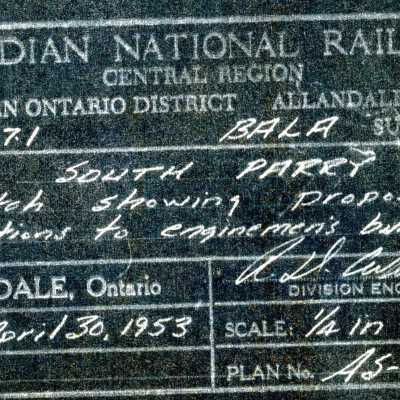 DIAN NATIONAL RAIL
CENTRAL REGION
N ONTARIO DISTRICT ALLANDAL
7.1 BALA SU
SOUTH PARRY
tch showing propo
tions to enginemen's bu
DALE, Ontario
DIVISION ENG
April 30, 1953 SCALE: 1/4 in
PLAN No. AS-